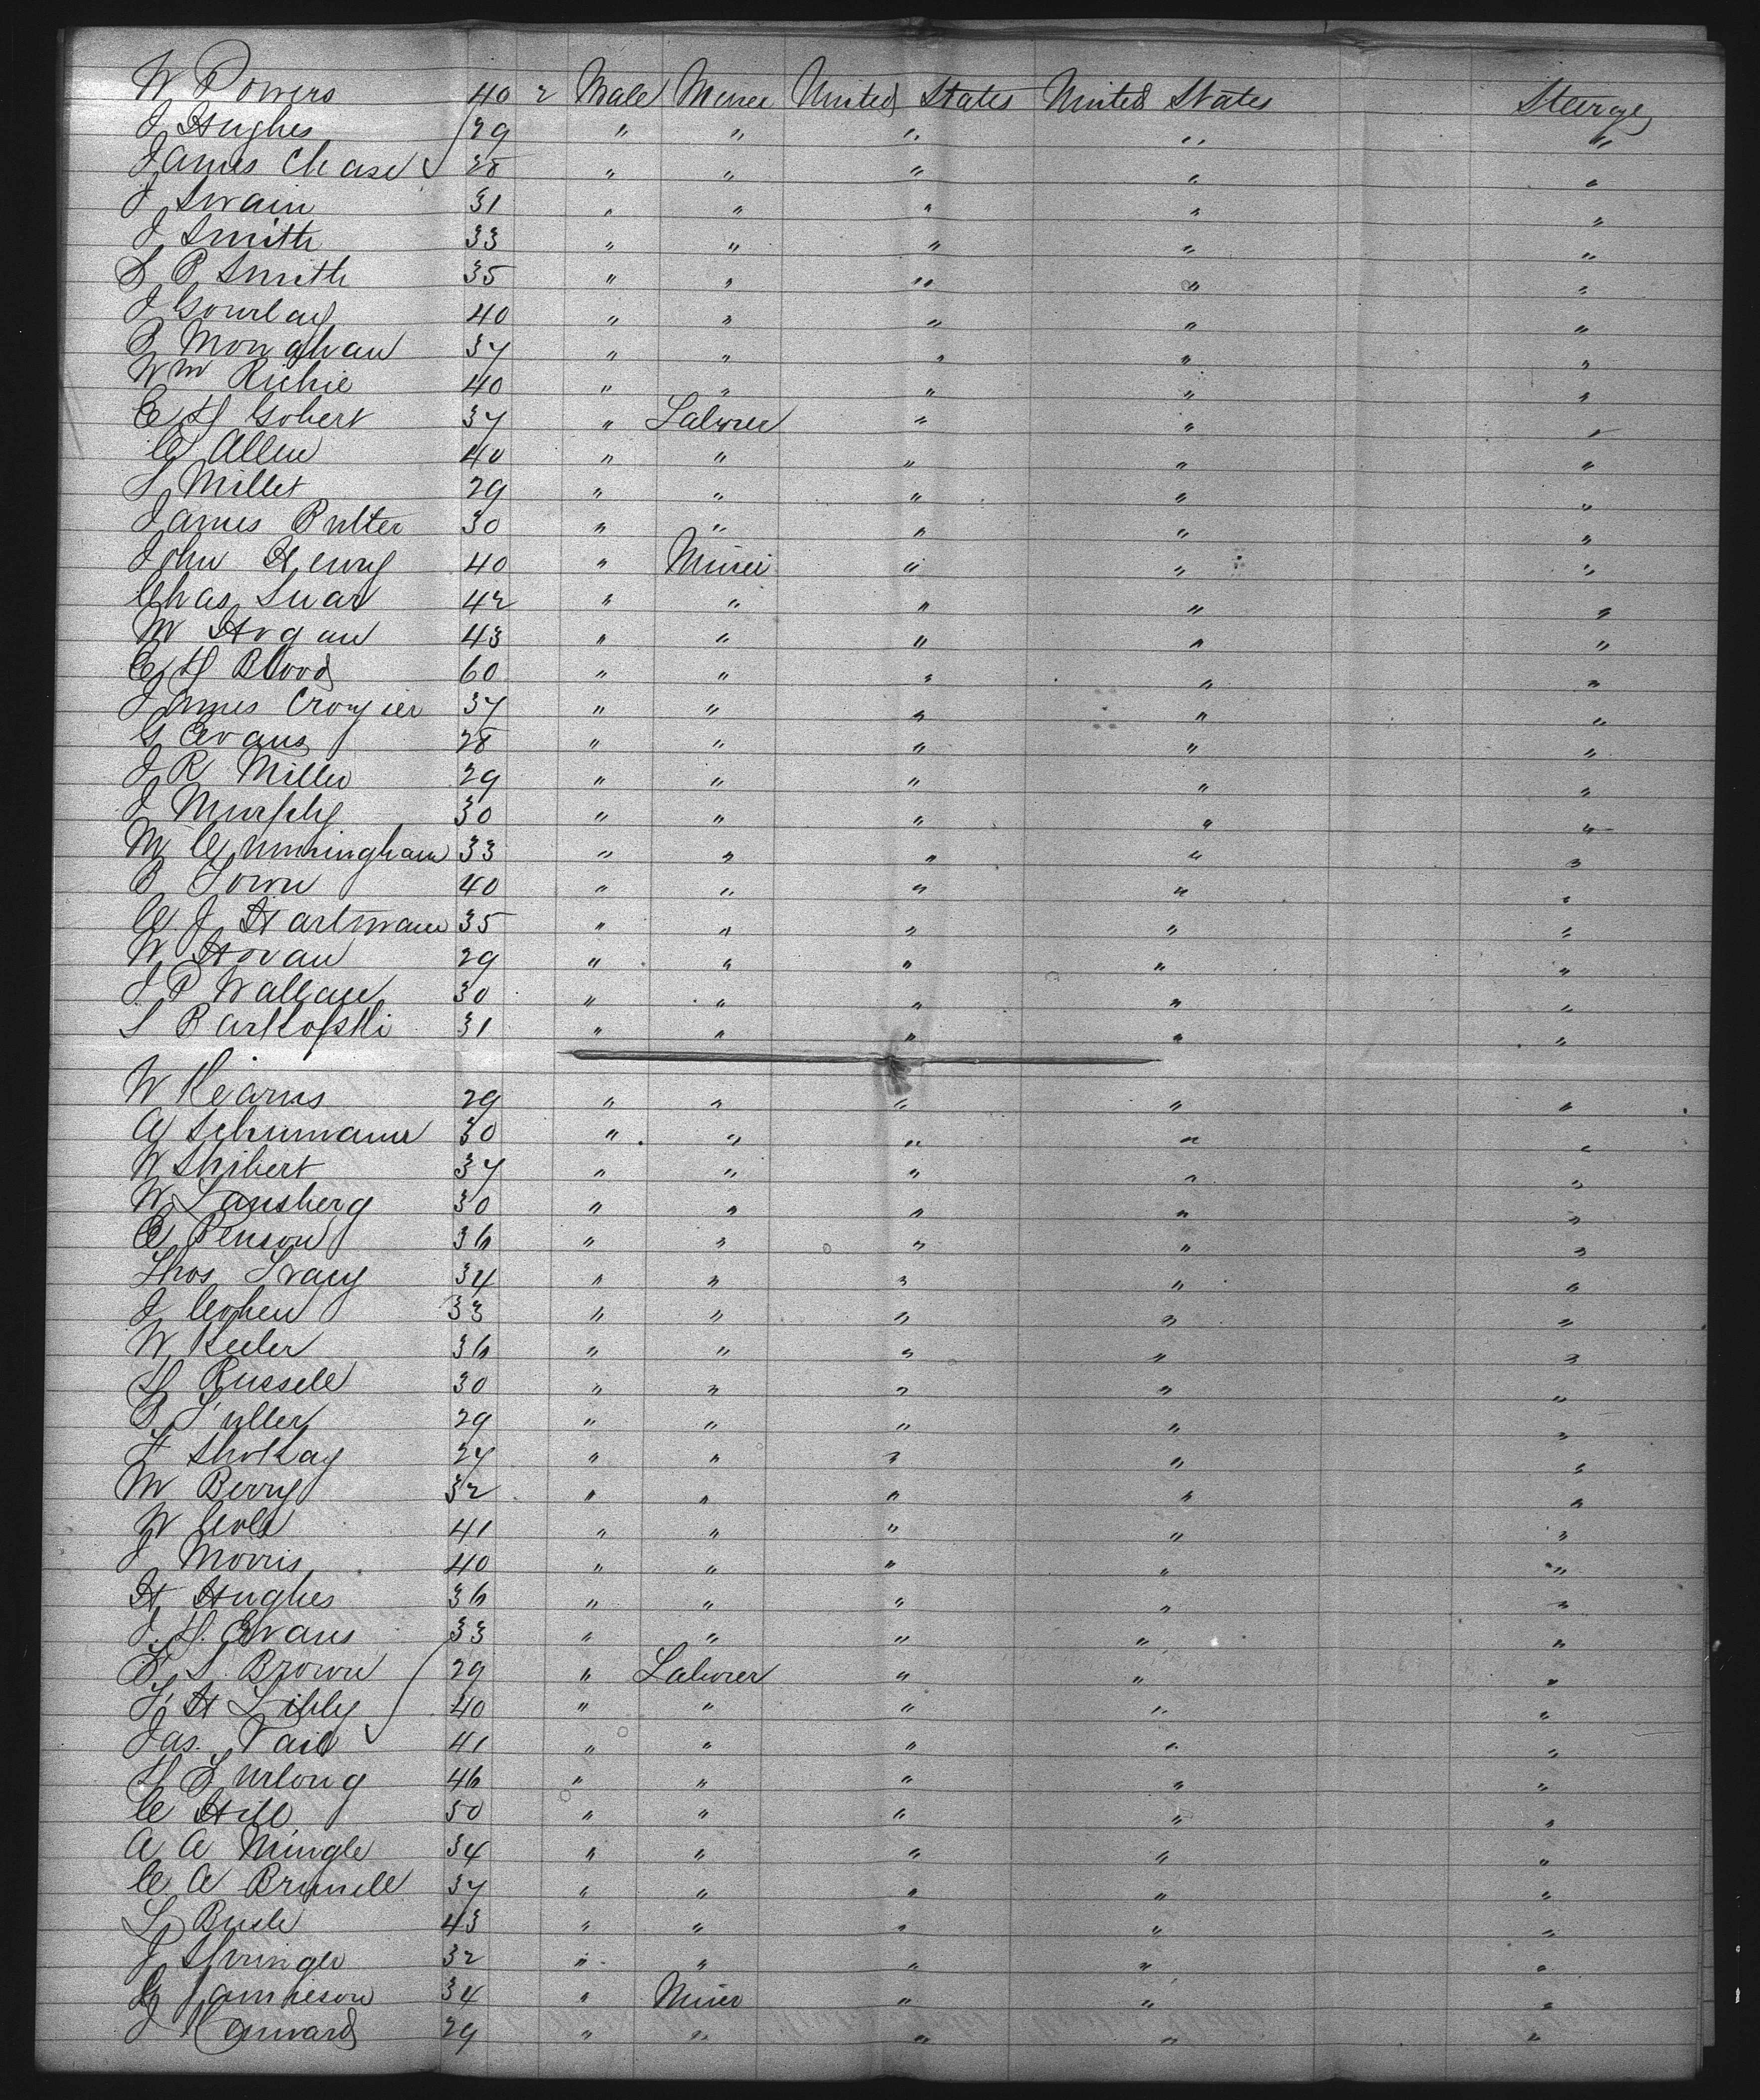 W Powers 40 2 Male Miner United States United States Steerage
J Hughes 29 " " " " "
James Chase 28 " " " " "
J Swain 31 " " " " "
J Smith 33 " " " " "
S P Smith 35 " " " " "
J Gourlay 40 " " " " "
P Monaghan 37 " " " " "
Wm Richie 40 " " " " "
C H Gobert 37 " Laborer " " "
C Allen 40 " " " " "
S Millet 29 " " " " "
James Butter 30 " " " " "
John Henry 40 " Miner " " "
Chas 42 " " " " "
M Hogan 43 " " " " "
C H Blood 60 " " " " "
James Crozier 37 " " " " "
G Evans 28 " " " " "
J R Miller 29 " " " " "
J Murphy 30 " " " " "
M Cunningham 33 " " " " "
P Town 40 " " " " "
C J Hartmann 35 " " " " "
W Horan 29 " " " " "
J P Wallace 30 " " " " "
S Bartkofski 31 " " " " "
W Kearns 29 " " " " "
A Schumann 30 " " " " "
W Shibert 37 " " " " "
W Lansberg 30 " " " " "
C Penson 36 " " " " "
Thos Tracy 34 " " " " "
J Cohen 33 " " " " "
W Keeler 36 " " " " "
H Russell 30 " " " " "
B Fuller 29 " " " " "
F Sholkay 27 " " " " "
M Berry 32 " " " " "
W Cole 41 " " " " "
J Morris 40 " " " " "
H Hughes 36 " " " " "
J. H. Evans 33 " " " " "
E S Brown 29 " Laborer " " "
F H Libby 40 " " " " "
Jas. Vail 41 " " " " "
H Furlong 46 " " " " "
C Hill 50 " " " " "
A A Mingle 34 " " " " "
C A Brunell 37 " " " " "
L Bush 43 " " " " "
J Springer 32 " " " " "
G Jamieson 34 " Miner " " "
J 29 " " " " "